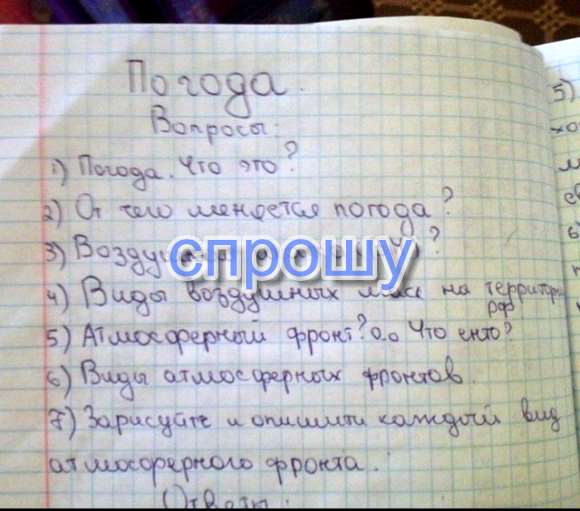 Погода.
Вопросы:
1) Погода. Что это?
2) От чего меняется погода?
3) Воздушные ?
спрошу
4) Виды воздушных масс на территории
РФ
5) Атмосферный фронт? О.о Что енто?
6) Виды атмосферных фронтов.
7) Зарисуйте и опишити каждый вид
атмосферного фронта.
Ответы:
5)